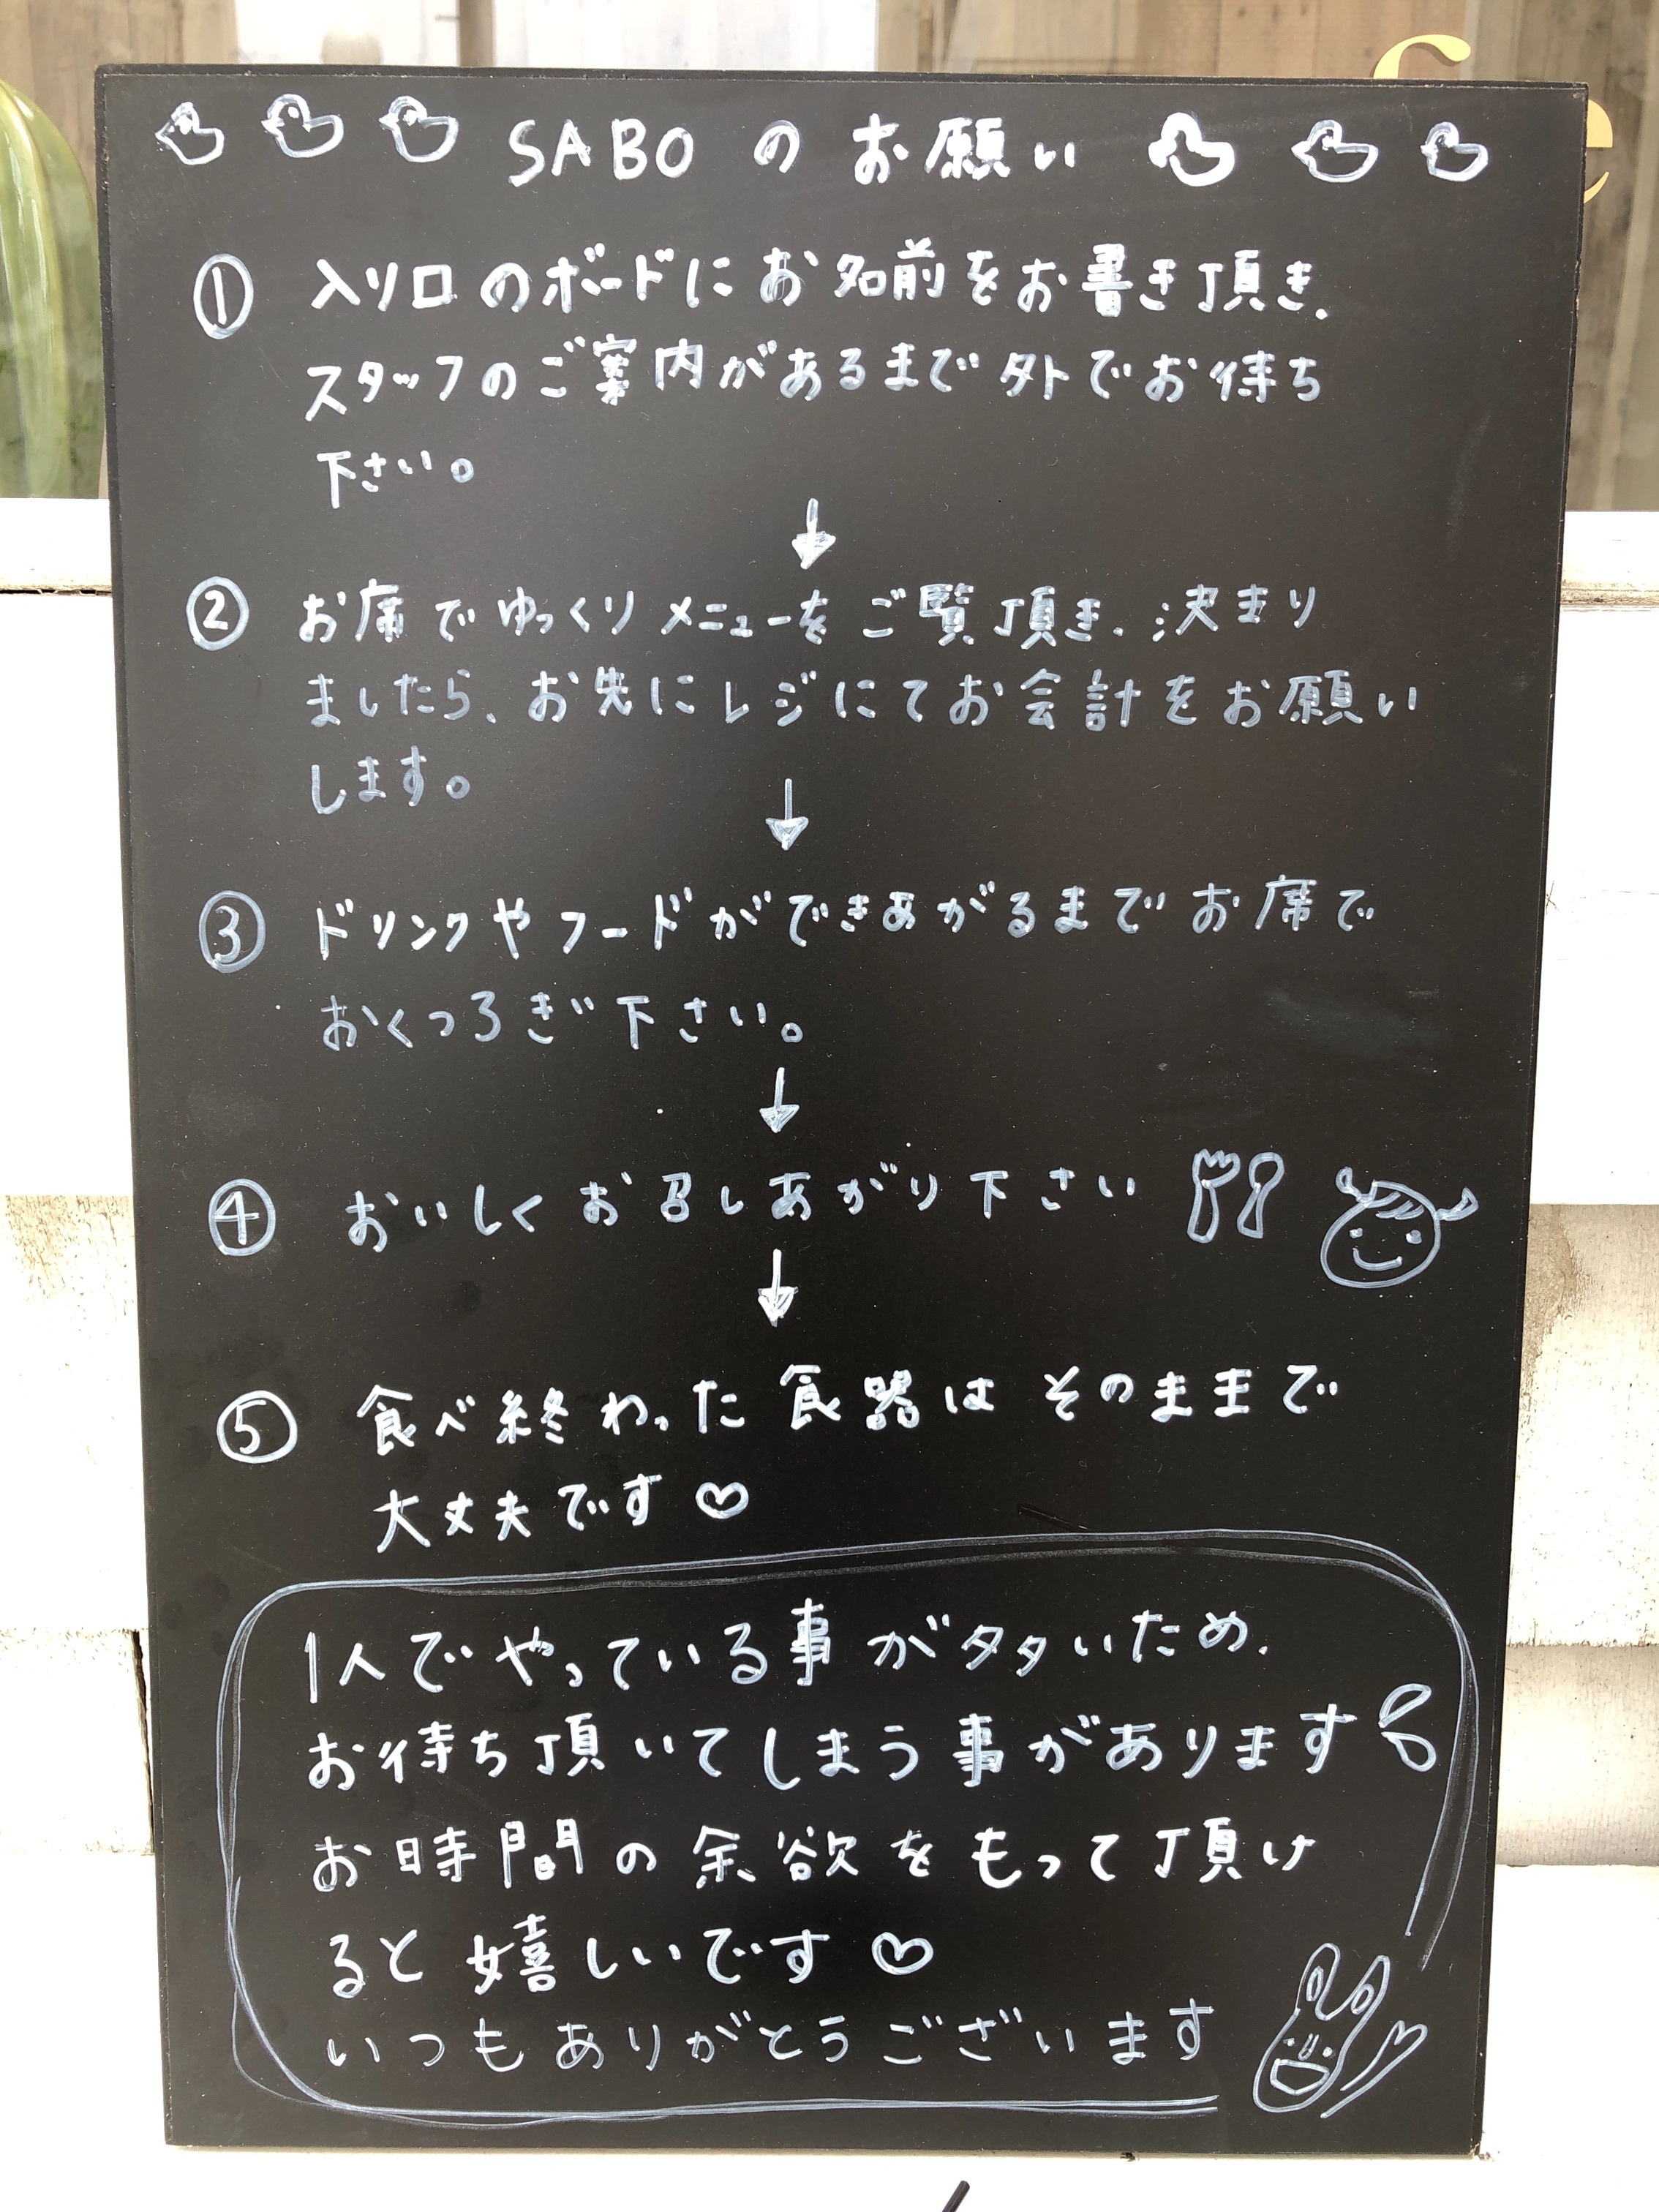 SABO のお願い
① 入り口のボードにお名前をお書き頂き、
スタッフのご案内があるまで外でお待ち
下さい。
↓
② お席でゆっくりメニューをご覧頂き、決まり
ましたら、お先にレジにてお会計をお願い
します。
↓
③ ドリンクやフードができあがるまでお席で
おくつろぎ下さい。
↓
④ おいしくお召しあがり下さい
↓
⑤ 食べ終わった食器はそのままで
大丈夫です♡
1人でやっている事が多いため、
お待ち頂いてしまう事があります
お時間の余欲をもって頂け
ると嬉しいです♡
いつもありがとうございます